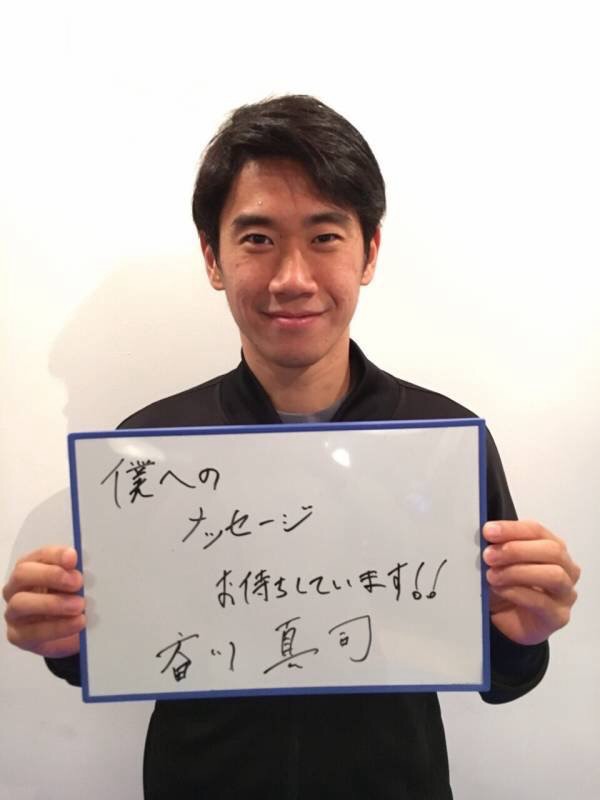 僕への
メッセージ
お待ちしています!!
香川 真司